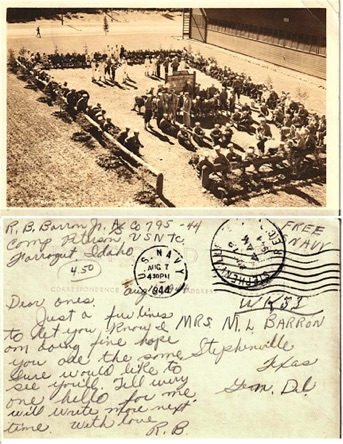 R. B. Barron Jr. AS Co 795-44
Camp Peterson, USNTC
Farragut, Idaho
4.50
FREE
NAVY
U.S. NAVY
AUG 7
430PM
1944
STEPHENVILLE
CORRESPONDENCE
Dear ones,
Just a few lines
to let you know I
am doing fine hope
you are the same
Sure would like to
see you'll. Tell every
one hello for me
will write more next
time. With love
R.B.
MRS M. L. BARRON
Stephenville
Texas
Gen. Del.